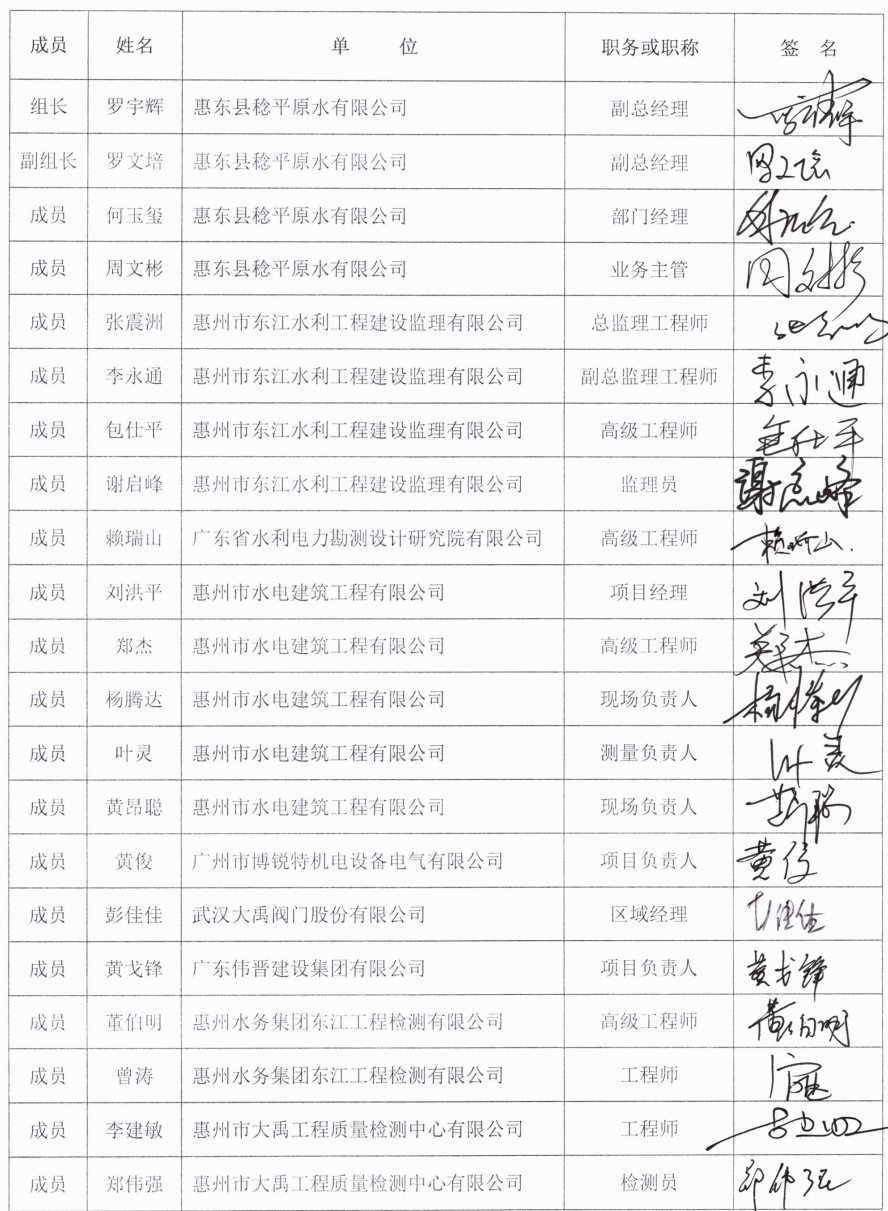 成员 姓名 单 位 职务或职称 签 名
组长 罗宇辉 惠东县稔平原水有限公司 副总经理
副组长 罗文培 惠东县稔平原水有限公司 副总经理
成员 何玉玺 惠东县稔平原水有限公司 部门经理
成员 周文彬 惠东县稔平原水有限公司 业务主管 周文彬
成员 张震洲 惠州市东江水利工程建设监理有限公司 总监理工程师
成员 李永通 惠州市东江水利工程建设监理有限公司 副总监理工程师 李永通
成员 包仕平 惠州市东江水利工程建设监理有限公司 高级工程师 包仕平
成员 谢启峰 惠州市东江水利工程建设监理有限公司 监理员 谢启峰
成员 赖瑞山 广东省水利电力勘测设计研究院有限公司 高级工程师 赖瑞山
成员 刘洪平 惠州市水电建筑工程有限公司 项目经理 刘洪平
成员 郑杰 惠州市水电建筑工程有限公司 高级工程师 郑杰
成员 杨腾达 惠州市水电建筑工程有限公司 现场负责人
成员 叶灵 惠州市水电建筑工程有限公司 测量负责人 叶灵
成员 黄昂聪 惠州市水电建筑工程有限公司 现场负责人
成员 黄俊 广州市博锐特机电设备电气有限公司 项目负责人 黄俊
成员 彭佳佳 武汉大禹阀门股份有限公司 区域经理
成员 黄戈锋 广东伟晋建设集团有限公司 项目负责人 黄戈锋
成员 董伯明 惠州水务集团东江工程检测有限公司 高级工程师 董伯明
成员 曾涛 惠州水务集团东江工程检测有限公司 工程师
成员 李建敏 惠州市大禹工程质量检测中心有限公司 工程师
成员 郑伟强 惠州市大禹工程质量检测中心有限公司 检测员 郑伟强